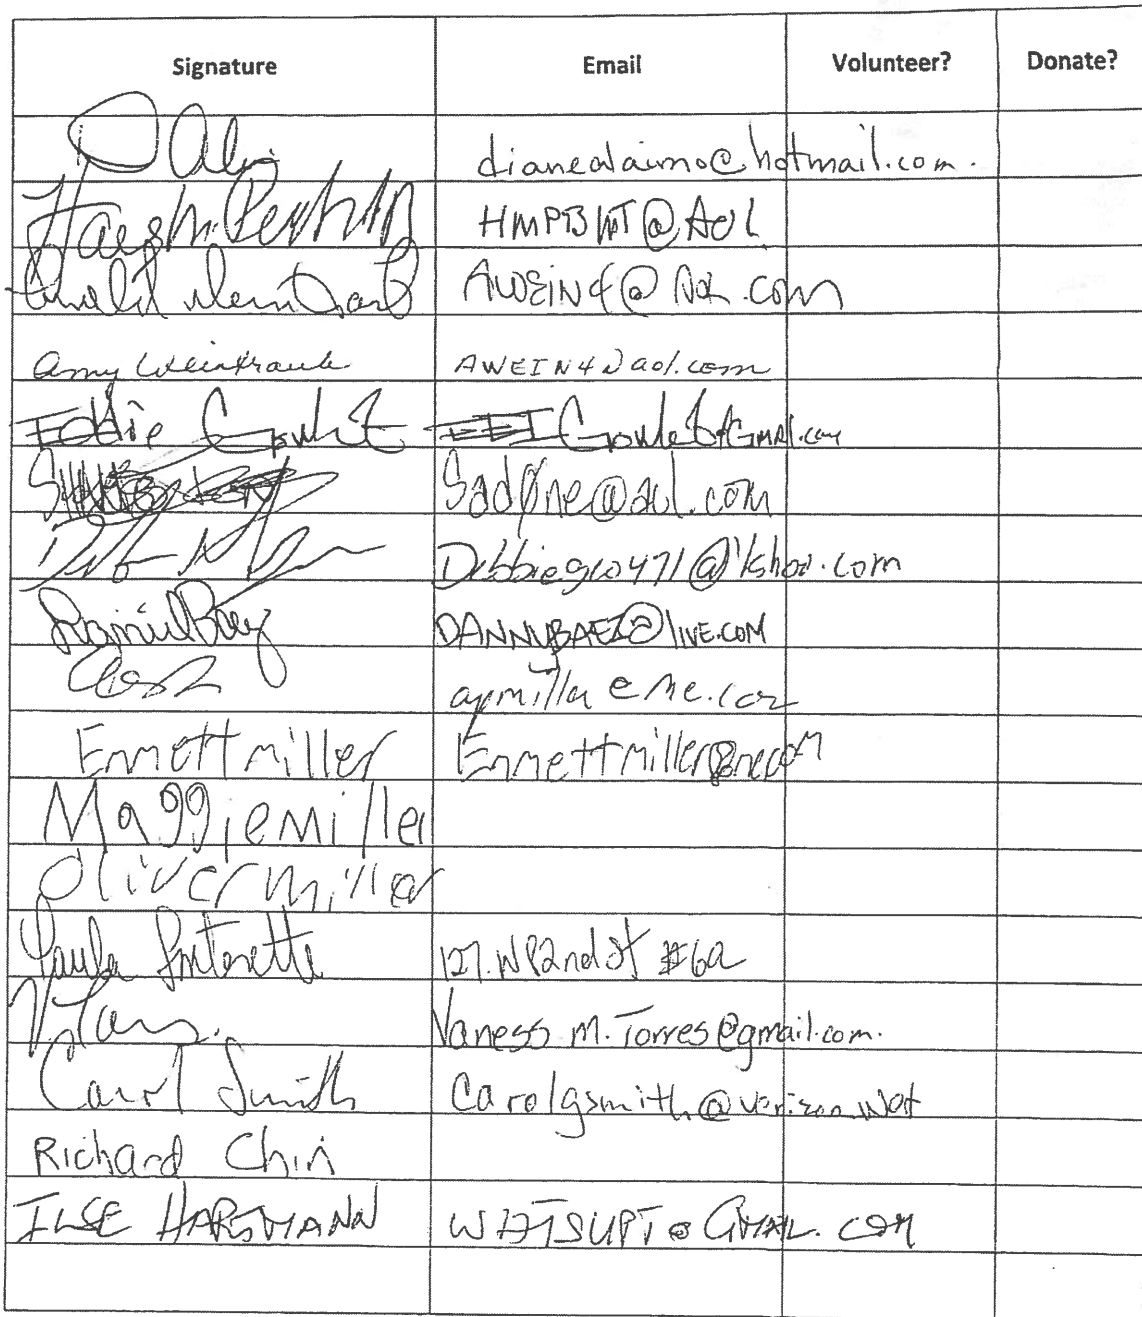 Signature Email Volunteer? Donate?
dianealaimo@hotmail.com.
HMPBMT@AOL
AWEIN4@AOL.COM
Amy Weintraub AWEIN4@aol.com
Eddie Goulet Goulet@Gmail.com
Sadøne@aol.com
DANNYBAEZ@LIVE.COM
Emmett miller Emmettmiller@me.com
Maggie Miller
oliver miller
Paula 127.W82nd St #6a
Vaness M.Torres@gmail.com.
Carol Smith Carolgsmith@verizon.net
Richard Chin
ILSE HARTMANN WHTSUPT@GMAIL.COM